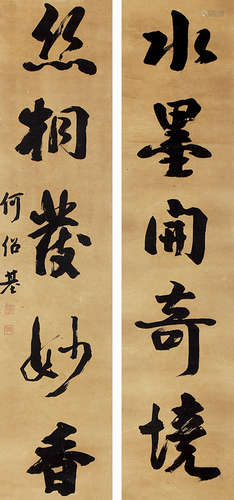 水墨開奇境
絲桐發妙香
何紹基